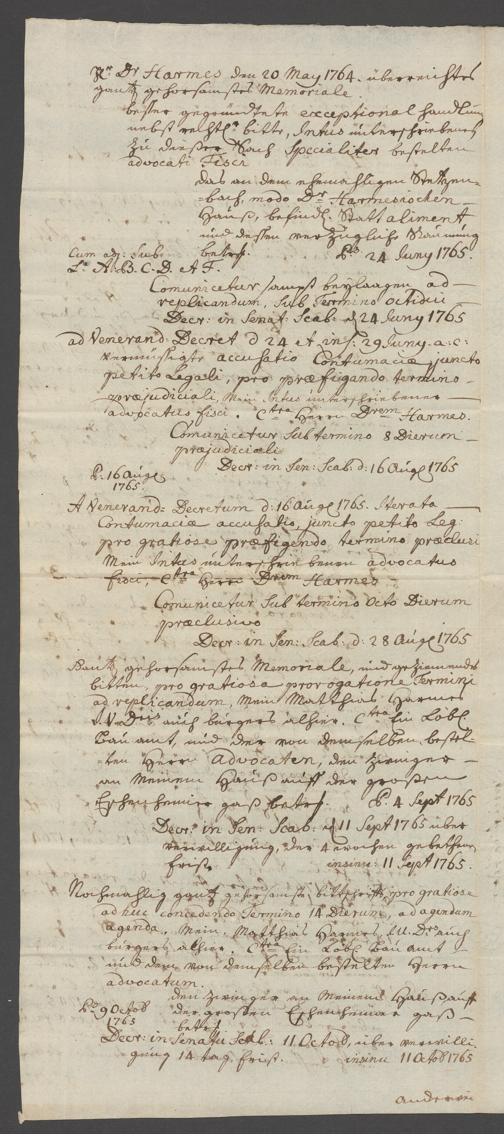 Hn Dr Harmes den 20 May 1764. überreichtes
gantz gehorsamstes Memoriale.
besser gegründtete exceptional handlung
nebst rechtl. bitte, Intus unterschriebenes
zu dießer Sach Specialiter bestelten
advocati Fisci
das an dem ehemahligen Stetzen-
bach, modo Dr Harmesischen
Hauß, befindl. Statt aliment
und deßen verzügliche Räumung
betref. Ps 24 Juny 1765.
Cum adj: Sub.
La A. B. C. D. et F.
Comunicetur sampt beylaagen ad
replicandum, Sub Termino Octidui
Decr: in Senat: Scab: d 24 Juny 1765
ad Venerand: Decret d 24 et ins: 29 Juny. a: c:
vermüsigte accusatio Contumaciæ, juncto
petito Legali, pro præfigando termino
præjudiciali, Mein Intus unterschriebener
advocatus fisci. Ctra Herrn Drem Harmes.
Comunicetur Sub termino 8 Dierum
præjudiciali
Decr: in Sen: Scab: d: 16 Aug 1765
Ps: 16 Aug
1765.
A Venerand: Decretum d: 16 Aug 1765. Iterata
Contumaciæ accusatio, juncto petito Leg:
pro gratiose præfigendo termino præclusi
Mein Intus unterschriebenen advocatus
fisci, Ctra Herrn Drem Harmes
Comunicetur Sub termino Octo Dierum
præclusivo
Decr: in Sen: Scab: d: 28 Aug 1765
Gantz gehorsamstes Memoriale, und geziemendes
bitten, pro gratiosa prorogatione Termini
ad replicandum, Mein Matthias Harmes
auch bürgers alhier. Ctra Ein Löbl.
Bau amt, und der von demselben bestel-
ten Herrn Advocaten, den zwinger
an Meinem Hauß auff der großen
Eschenheimer gaß betref. Ps: 4 Sept 1765
Decr: in Sen: Scab: d 11 Sept 1765 über
verwilligung, der 4 wochen gebethenen
frist. insinu: 11 Sept 1765.
Nochmahlig gantz gehorsamste bittschrifft, pro gratiose
adhuc concedendo Termino 14 Dierum, ad agendum
agenda, Mein, Matthias Harmes, J.U. Dr auch
bürgers alhier. Ctra Ein Löbl. Bau amt
und dem von demselben bestelten Herrn
advocatum.
den zwinger an Meinem Hauß auff
der großen Eschenheimer gaß
betref
Ps 9 Octob
1765
Decr: in Senatu Scab: 11 Octob, über verwilli-
gung 14 tag. frist. insinu 11 Octob 1765